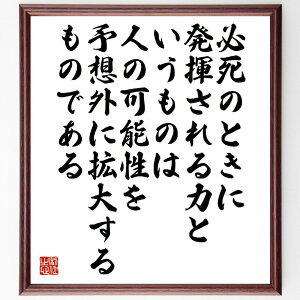 必死のときに
発揮される力と
いうものは
人の可能性を
予想外に拡大する
ものである